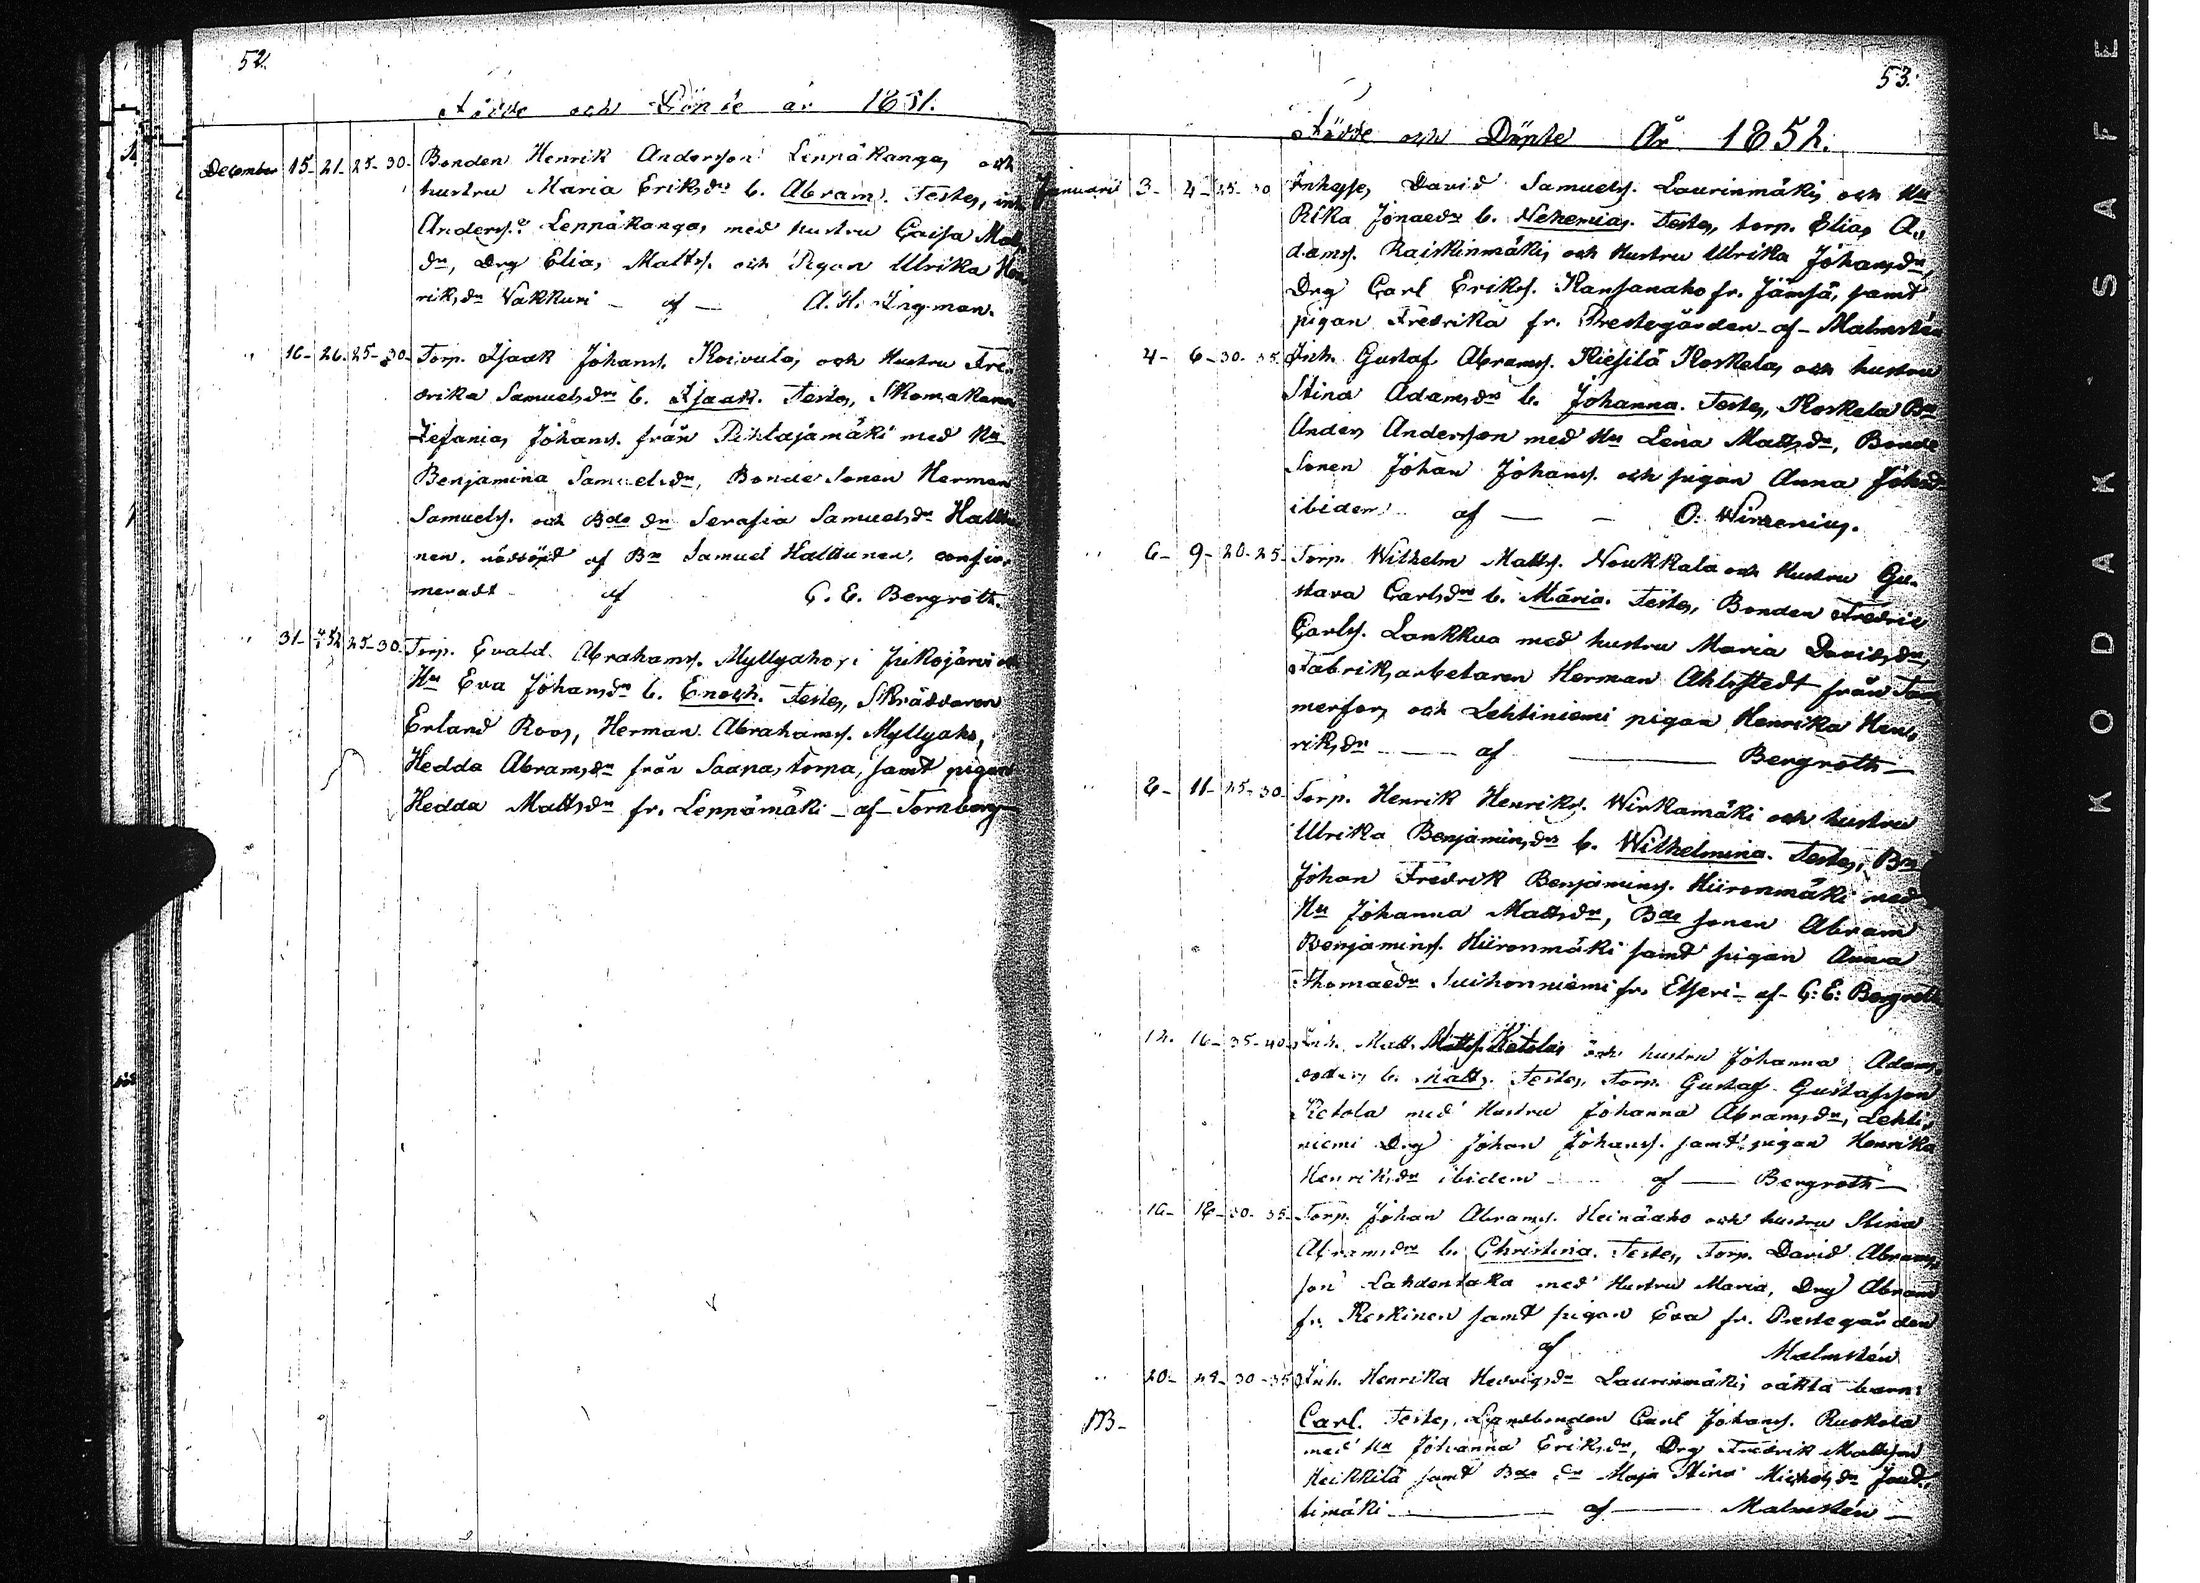 52.
Födde och Döpte år 1851.
December 15- 21- 25-30- Bonden Henrik Andersson Leppäkangas och
hustru Maria Eriksdr b. Abram. Testes, inh.
Anderss. Leppäkangas med hustru Caisa Matts
dr, Drg Elias Matts. och Pigan Ulrika Hen
riksdr Vakkuri - af - A. H. Ingman.
" 16- 26- 25-30- Torp. Isaak Johans. Koivula, och Hustru Fre
drika Samuelsdr b. Isaak. Testes, Skomakaren
Zefanias Johans. från Pihlajamäki med Hu
Benjamina Samuelsdr, Bonde Sonen Herman
Samuels. och Bde dr Serafia Samuelsdr Hallu
nen, nöddöpt af Bn Samuel Hallunen, confir-
meradt af C. E. Bergroth.
" 31- 52 25-30- Torp. Evald Abrahams. Myllyaho, i Jukojärvi och
Hu Eva Johansdr b. Enoch. Testes, Skräddaren
Erland Roos, Herman Abrahams. Myllyaho,
Hedda Abramsdr från Saanas torpa, samt pigan
Hedda Mattsdr fr. Leppämäki - af - Tornberg
53.
Födde och Döpte År 1852.
Januarii 3- 4- 25-30 Inhyses David Samuels. Laurinmäki, och Hu
Rika Jonaedr b. Nehemias. Testes, torp. Elias A-
dams. Raiskinmäki, och Hustru Ulrika Johansdr,
Drg Carl Eriks. Kansanaho fr. Jämsä, samt
pigan Fredrika fr. Prestegården - af - Malmstén
4- 6- 30-35. Inh. Gustaf Abrams. Kiesilä Koskela, och hustru
Stina Adamsdr b. Johanna. Testes, Koskela Bn
Anders Andersson med Hu Lena Mattsdr, Bonde
Sonen Johan Johans. och pigan Anna Johsdr
ibidem af - - O. Wirzenius.
" 6- 9- 20-25- Torp. Wilhelm Matts. Noukkala och Hustru Gu-
stava Carlsdr b. Maria. Testes, Bonden Fredric
Carls. Lankkua med hustru Maria Davidsdr,
Fabriksarbetaren Herman Ahlstedt från Tam
merfors och Lehtiniemi pigan Henrika Hen-
riksdr - af - Bergroth -
" 8- 11- 25-30- Torp. Henrik Henriks. Wirkamäki och hustru
Ulrika Benjaminsdr b. Wilhelmina. Testes, Bn
Johan Fredrik Benjamins. Hiironmäki med
Hu Johanna Mattsdr, Bde sonen Abram
Benjamins. Hiironmäki samt pigan Anna
Thomaedr Suihonniemi fr. Etseri - af - C. E. Bergroth
" 12. 16- 35-40. Inh. Matts Matts. Ketola, och hustru Johanna Adams
dotter, b. Matts. Testes, Torp. Gustaf Gustafsson
Ketola med Hustru Johanna Abramsdr, Lehti-
niemi Drg Johan Johans. samt pigan Henrika
Henriksdr ibidem - af - Bergroth -
16- 18- 30-35- Torp. Johan Abrams. Heinäaho och hustru Stina
Abramsdr b. Christina. Testes, Torp. David Abrams
son Lahdentaka med Hustru Maria, Drg Abram
fr. Keskinen samt pigan Eva fr. Prestegården
af Malmstén
" 20- 24- 30-35 Inh. Henrika Hedvigsdr Laurinmäki, oäkta barn:
NB- Carl. Testes, Landbonden Carl Johans. Ruokola
med Hu Johanna Eriksdr, Drg Fredrik Mattsson
Heikkilä samt Bde dr Maja Stina Michelsdr Jout-
timäki - af - Malmstén -
KODAK SAFE